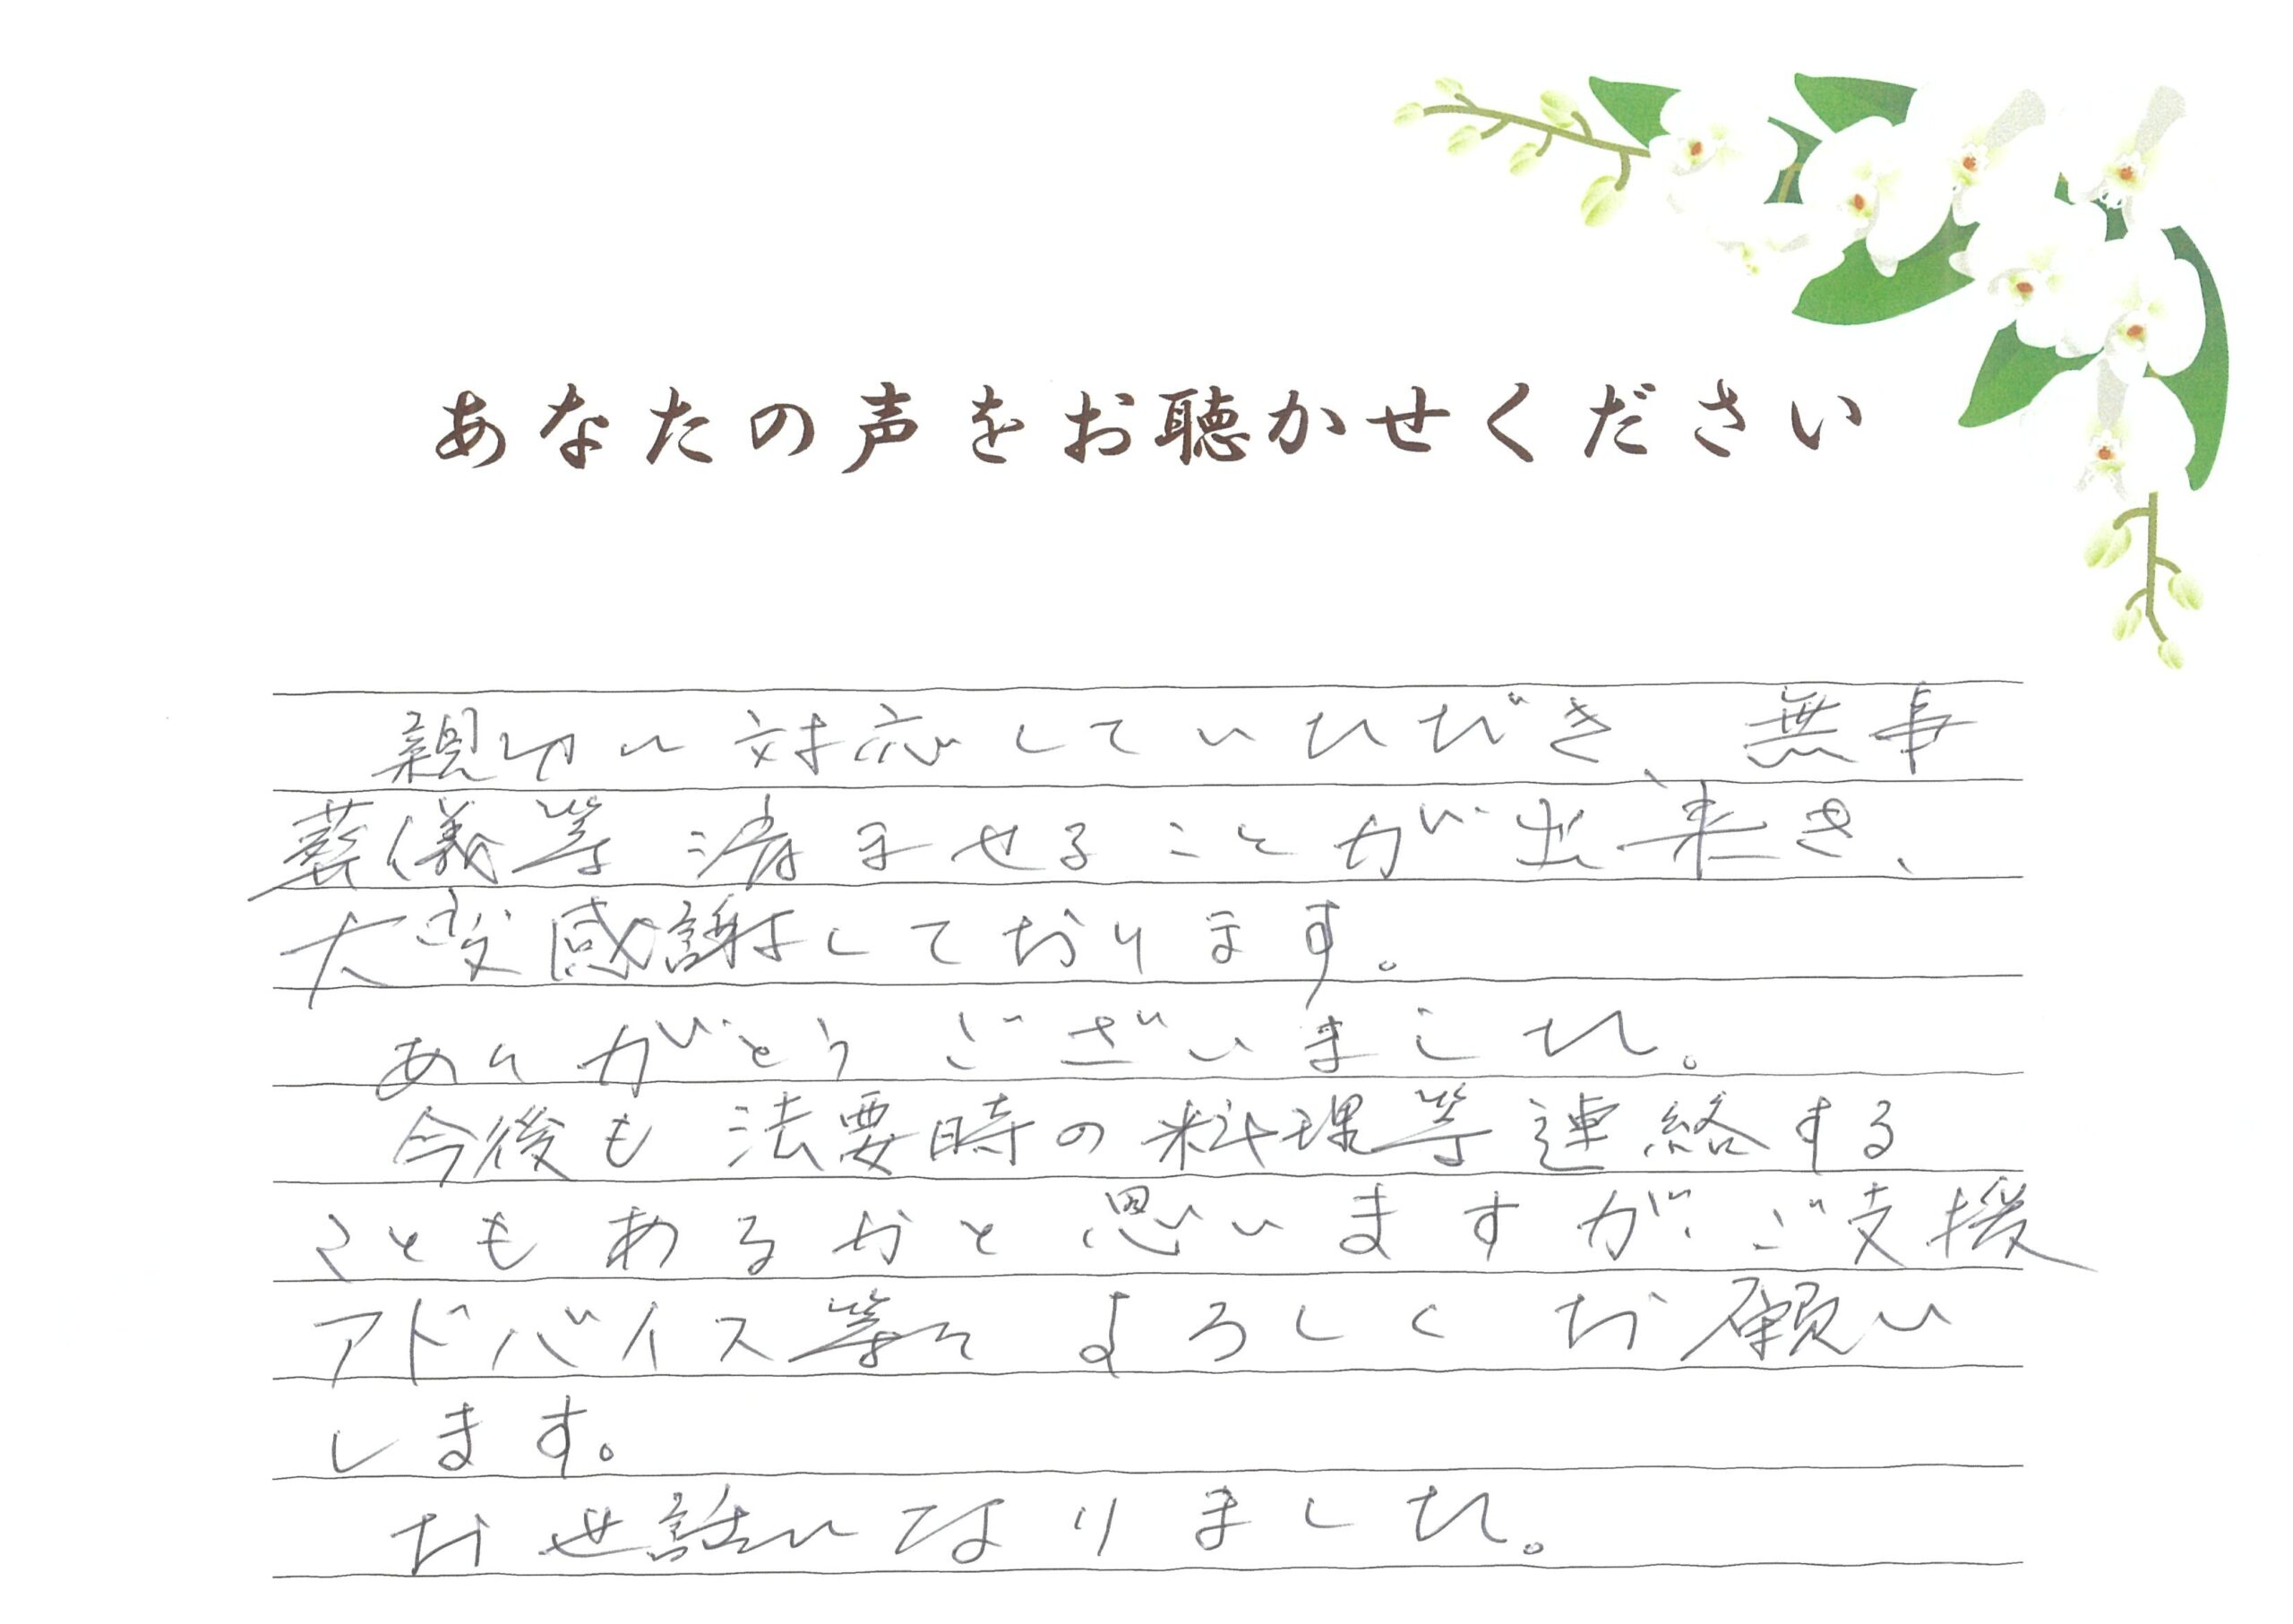 あなたの声をお聴かせください
親切に対応していただき、無事
葬儀等済ませることが出来き、
大変感謝しております。
ありがとうございました。
今後も法要時の料理等連絡する
こともあるかと思いますが、ご支援
アドバイス等々よろしくお願い
します。
お世話になりました。